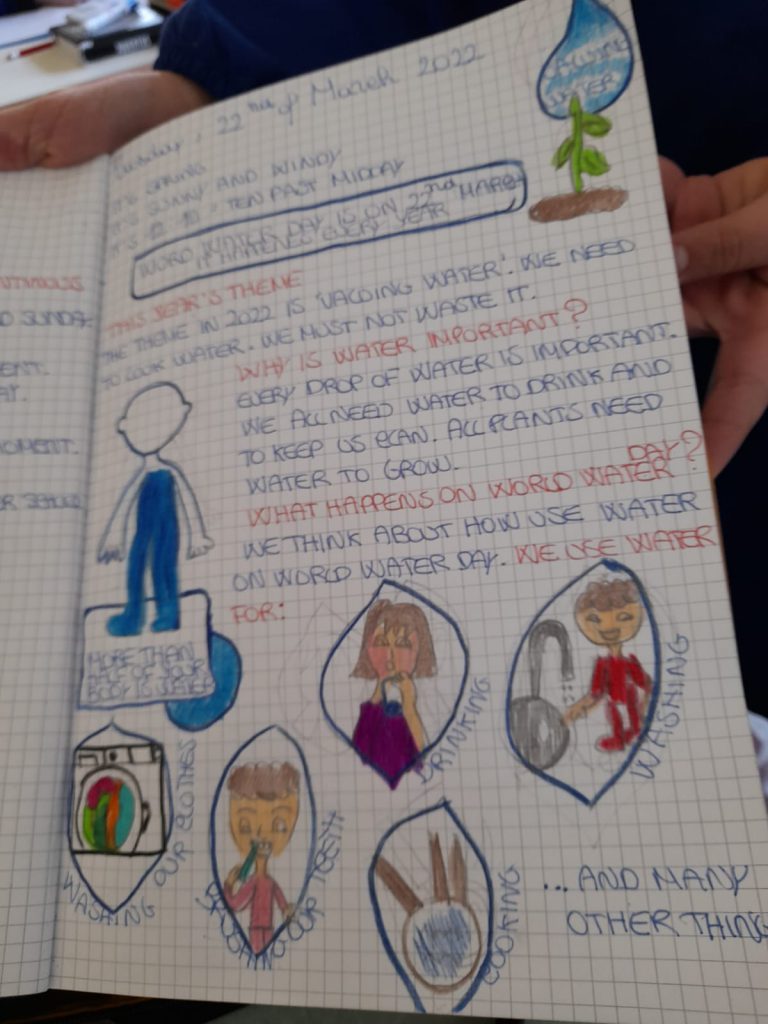 Tuesday, 22nd of March 2022
IT'S SPRING
IT'S SUNNY AND WINDY
IT'S 12:10 - TEN PAST MIDDAY
VALUING
WATER
WORD WATER DAY IS ON 22nd MARCH
IT HAPPENS EVERY YEAR
THIS YEAR'S THEME
THE THEME IN 2022 IS 'VALUING WATER'. WE NEED
TO LOOK WATER. WE MUST NOT WASTE IT.
WHY IS WATER IMPORTANT?
EVERY DROP OF WATER IS IMPORTANT.
WE ALL NEED WATER TO DRINK AND
TO KEEP US CLEAN. ALL PLANTS NEED
WATER TO GROW.
WHAT HAPPENS ON WORLD WATER DAY?
WE THINK ABOUT HOW USE WATER
ON WORLD WATER DAY. WE USE WATER
FOR:
MORE THAN
HALF OF YOUR
BODY IS WATER
DRINKING
WASHING
WASHING OUR CLOTHES
BRUSHING OUR TEETH
COOKING
...AND MANY
OTHER THING
SUNDAY
MOMENT.